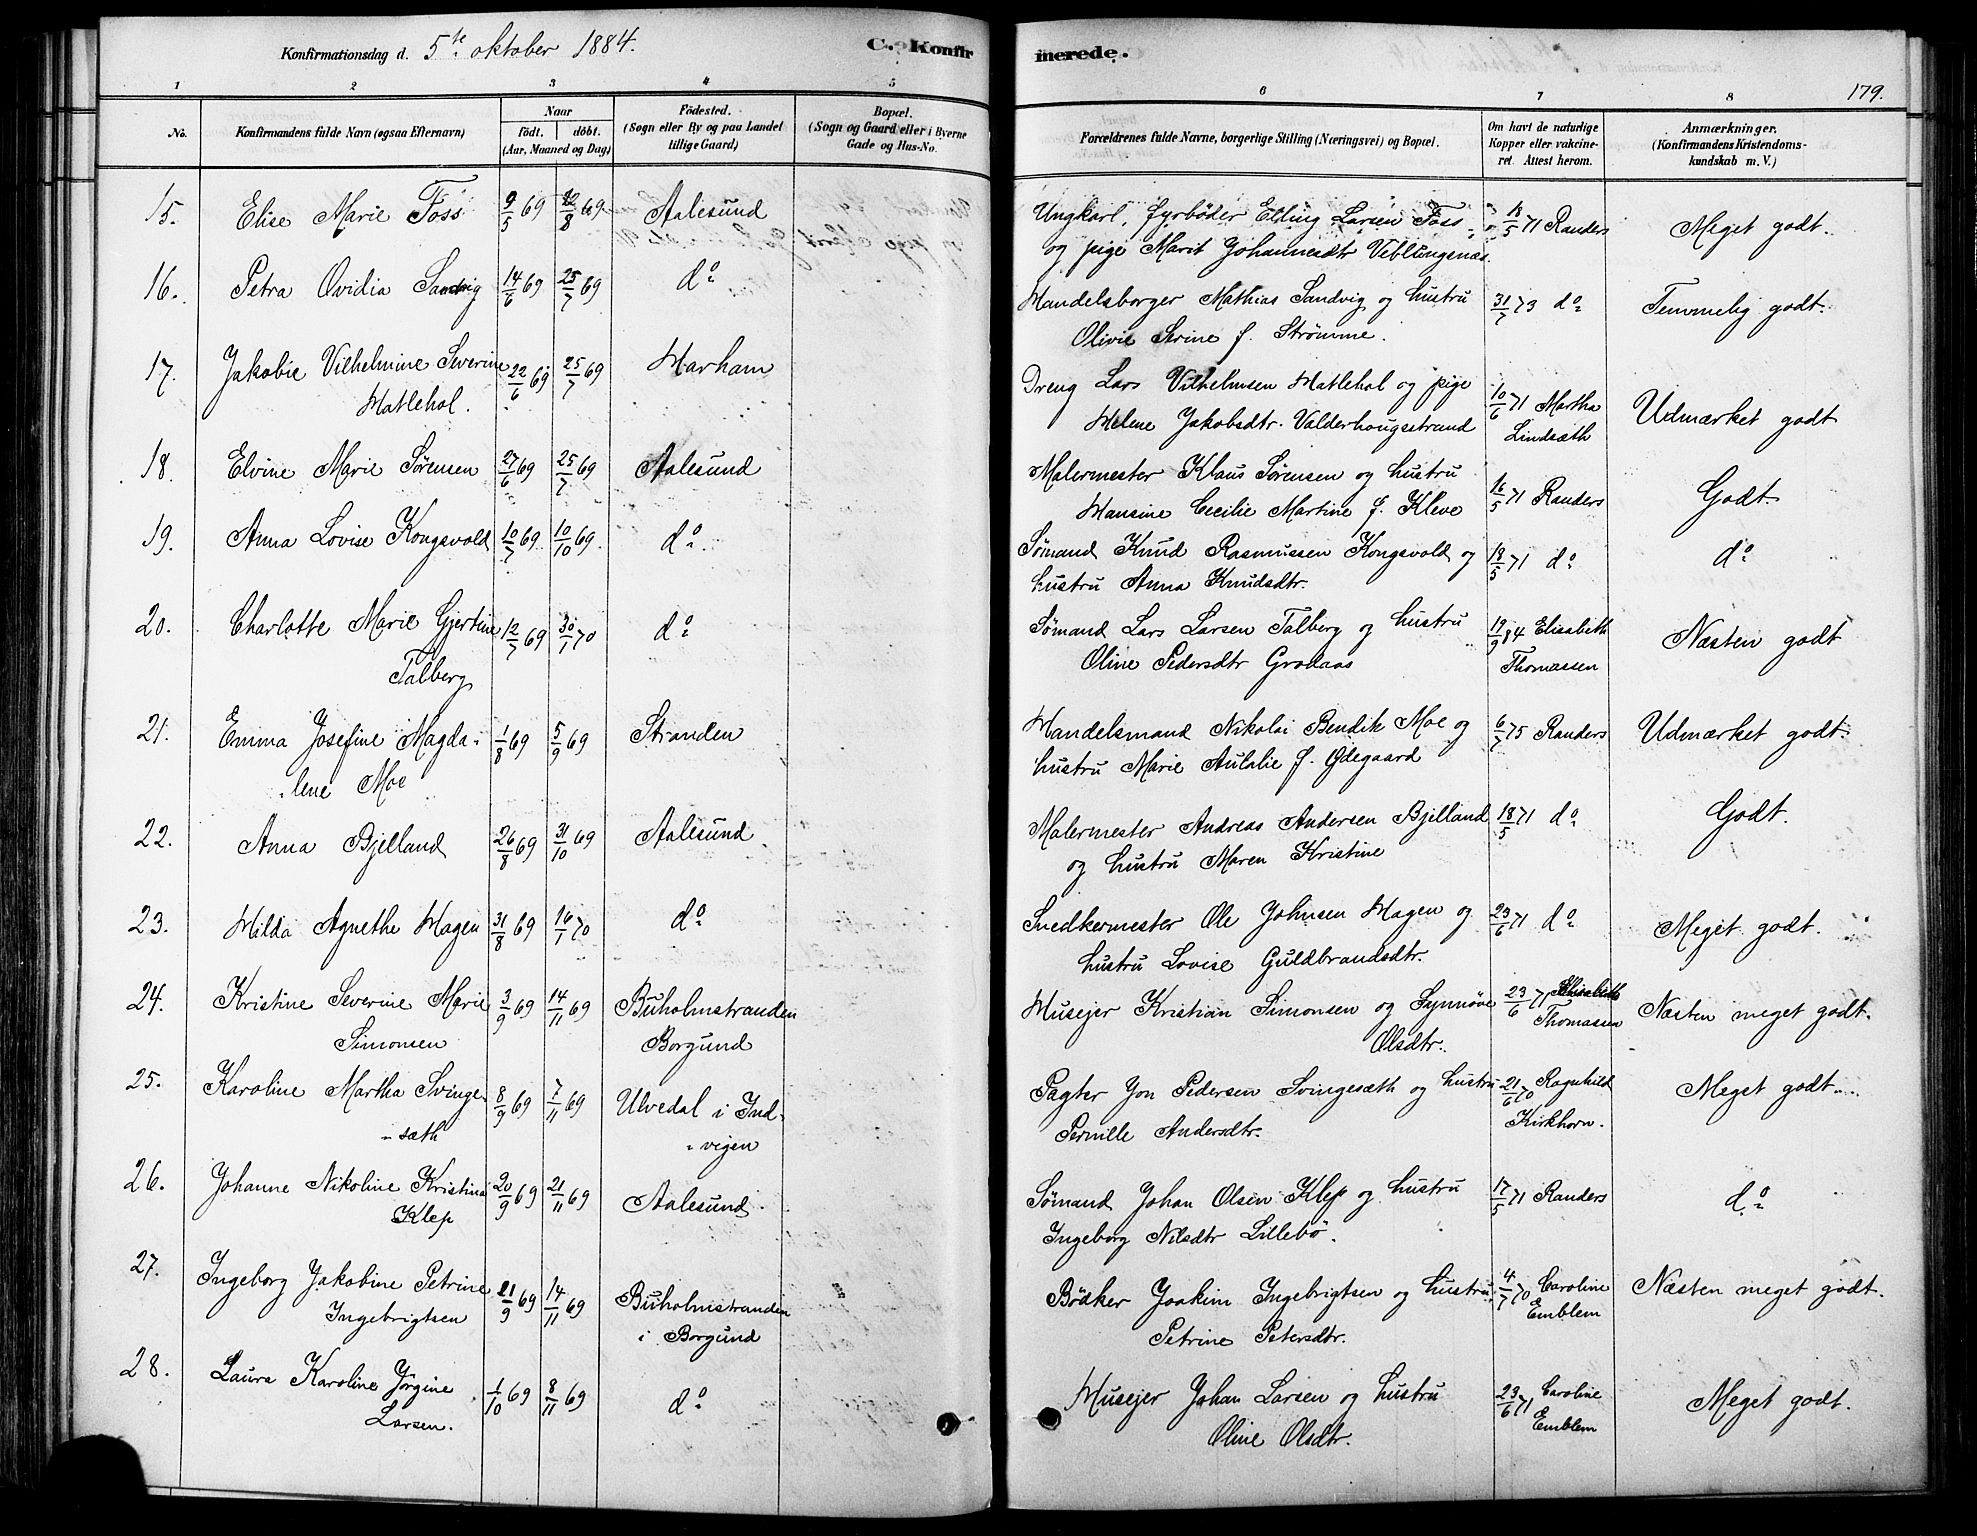 Konfirmationsdag d. 5te oktober 1884.
C. Konfirmerede.
179.
1 2 3 4 5 6 7 8
No.
Konfirmandens fulde Navn (ogsaa Efternavn)
Naar
födt. döbt.
(Aar, Maaned og Dag)
Födested.
(Sogn eller By og paa Landet
tillige Gaard)
Bopæl.
(Sogn og Gaard eller i Byerne
Gade og Hus-No.
Forældrenes fulde Navne, borgerlige Stilling (Næringsvei) og Bopæl.
Om havt de naturlige
Kopper eller vakcine-
ret. Attest herom.
Anmærkninger.
(Konfirmandens Kristendoms-
kundskab m. V.)
15. Elise Marie Foss 9/5 69 /8 69 Aalesund Ungkarl, fyrbøder Elling Larsen Foss 18/5 71 Randers Meget godt.
og pige Marit Johannesdtr Veblungenæs
16. Petra Ovidia Sandvig 14/6 69 25/7 69 do Handelsborger Mathias Sandvig og hustru 31/7 73 do Temmelig godt.
Olivie Serine f. Strømme.
17. Jakobie Vilhelmine Severine 22/6 69 25/7 69 Harham Dreng Lars Vilhelmsen Hatlehol og pige 10/6 71 Martha Udmærket godt
Hatlehol. Helene Jakobsdtr. Valderhougsstrand Lindsæth
18. Elvine Marie Sørensen 27/6 69 25/7 69 Aalesund Malermester Klaus Sørensen og hustru 16/5 71 Randers Godt
Hansine Cecilie Martine f. Kleve
19. Anna Lovise Kongsvold 10/7 69 10/10 69. do Sømand Knud Rasmussen Kongsvold og 18/5 71 do do
hustru Anna Knudsdtr.
20. Charlotte Marie Gjertine 12/7 69 30/1 70 do Sømand Lars Larsen Talberg og hustru 19/9 84 Elisabeth Næsten godt
Talberg Oline Pedersdtr Grodaas Thomassen
21. Emma Josefine Magda- 1/8 69 5/9 69 Stranden Handelsmand Nikolai Bendik Moe og 6/7 75 Randers Udmærket godt.
-lene Moe hustru Marie Aulalie f. Ødegaard
22. Anna Bjelland 26/8 69 31/10 69 Aalesund Malermester Andreas Andersen Bjelland 18/5 71 do Godt.
og hustru Maren Kristine
23. Hilda Agnethe Hagen 31/8 69 16/1 70 do Snedkermester Ole Johnsen Hagen og 23/6 71 do Meget godt.
hustru Lovise Guldbrandsdtr.
24. Kristine Severine Marie 3/9 69 14/11 69 Buholmstranden Husejer Kristian Simonsen og Synnøve 23/6 71 Elisabeth Næsten meget godt.
Simonsen Borgund Olsdtr. Thomassen
25. Karoline Martha Svinge- 8/9 69 7/11 69 Ulvedal i Ind- Pagter Jon Pedersen Svingesæth og hustru 21/6 70 Ragnhild Meget godt.
-sæth -vigen Pernille Andersdtr. Kirkhorn.
26. Johanne Nikoline Kristina 20/9 69 21/11 69 Aalesund Sømand Johan Olsen Klep og hustru 17/5 71 Randers do
Klep Ingeborg Nilsdtr Lillebø.
27. Ingeborg Jakobine Petrine 21/9 69 14/11 69 Buholmstranden Bødker Joakim Ingebrigtsen og hustru 4/7 70 Caroline Næsten meget godt.
Ingebrigtsen i Borgund Petrine Petersdtr. Emblem
28. Laura Karoline Jørgine 1/10 69 8/11 69 do Husejer Johan Larsen og hustru 23/6 71 Caroline Meget godt.
Larsen. Oline Olsdtr. Emblem